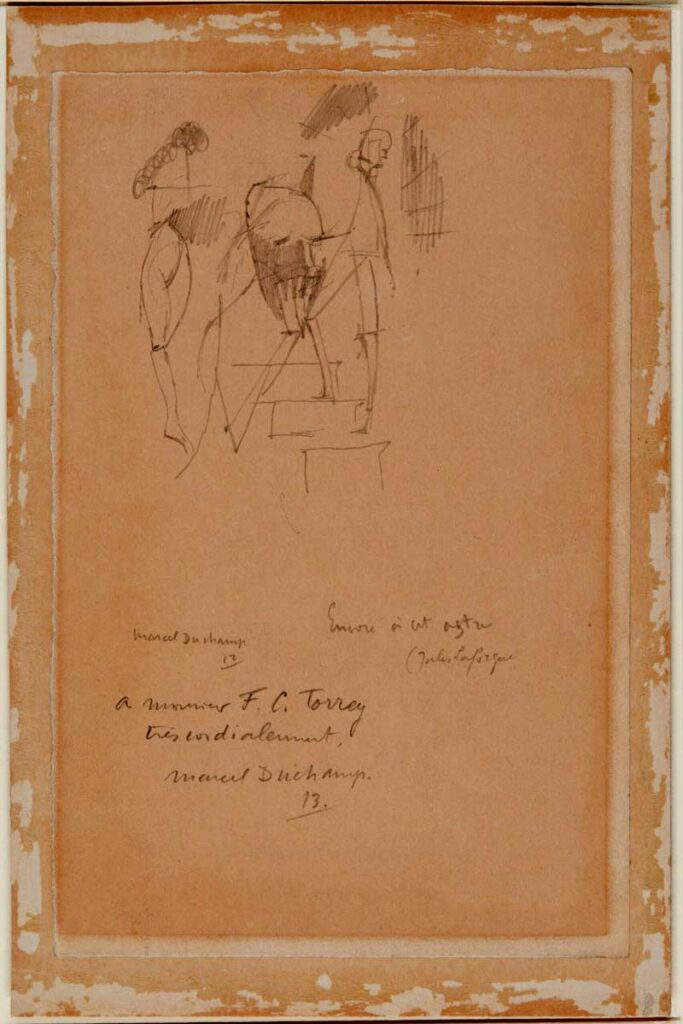 Encore à cet astre
(Jules Laforgue
Marcel Duchamp
12
a monsieur F. C. Torrey
très cordialement,
Marcel Duchamp.
13.